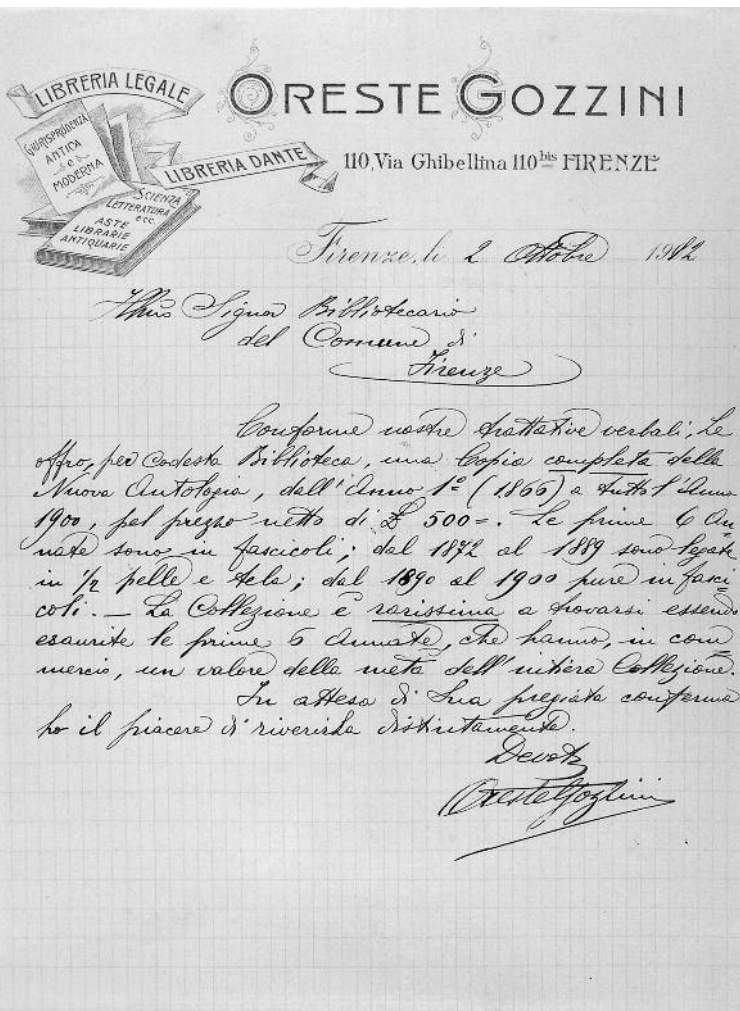 LIBRERIA LEGALE
ORESTE GOZZINI
GIURISPRUDENZA
ANTICA
e
MODERNA
LIBRERIA DANTE
110, Via Ghibellina 110 bis FIRENZE
SCIENZA
LETTERATURA
ecc.
ASTE
LIBRARIE
ANTIQUARIE
Firenze, li 2 Ottobre 1902
Illmo Signor Bibliotecario
del Comune di
Firenze
Conforme nostre trattative verbali, Le
offro, per codesta Biblioteca, una Copia completa della
Nuova Antologia, dall'Anno 1º (1866) a tutto l'Anno
1900, pel prezzo netto di £ 500=. Le prime 6 An-
nate sono in fascicoli; dal 1872 al 1889 sono legate
in ½ pelle e tela; dal 1890 al 1900 pure in fasci-
coli. — La Collezione è rarissima a trovarsi essendo
esaurite le prime 5 Annate, che hanno, in com-
mercio, un valore della metà dell'intiera Collezione.
In attesa di Sua pregiata conferma
ho il piacere di riverirla distintamente.
Devoto
Oreste Gozzini